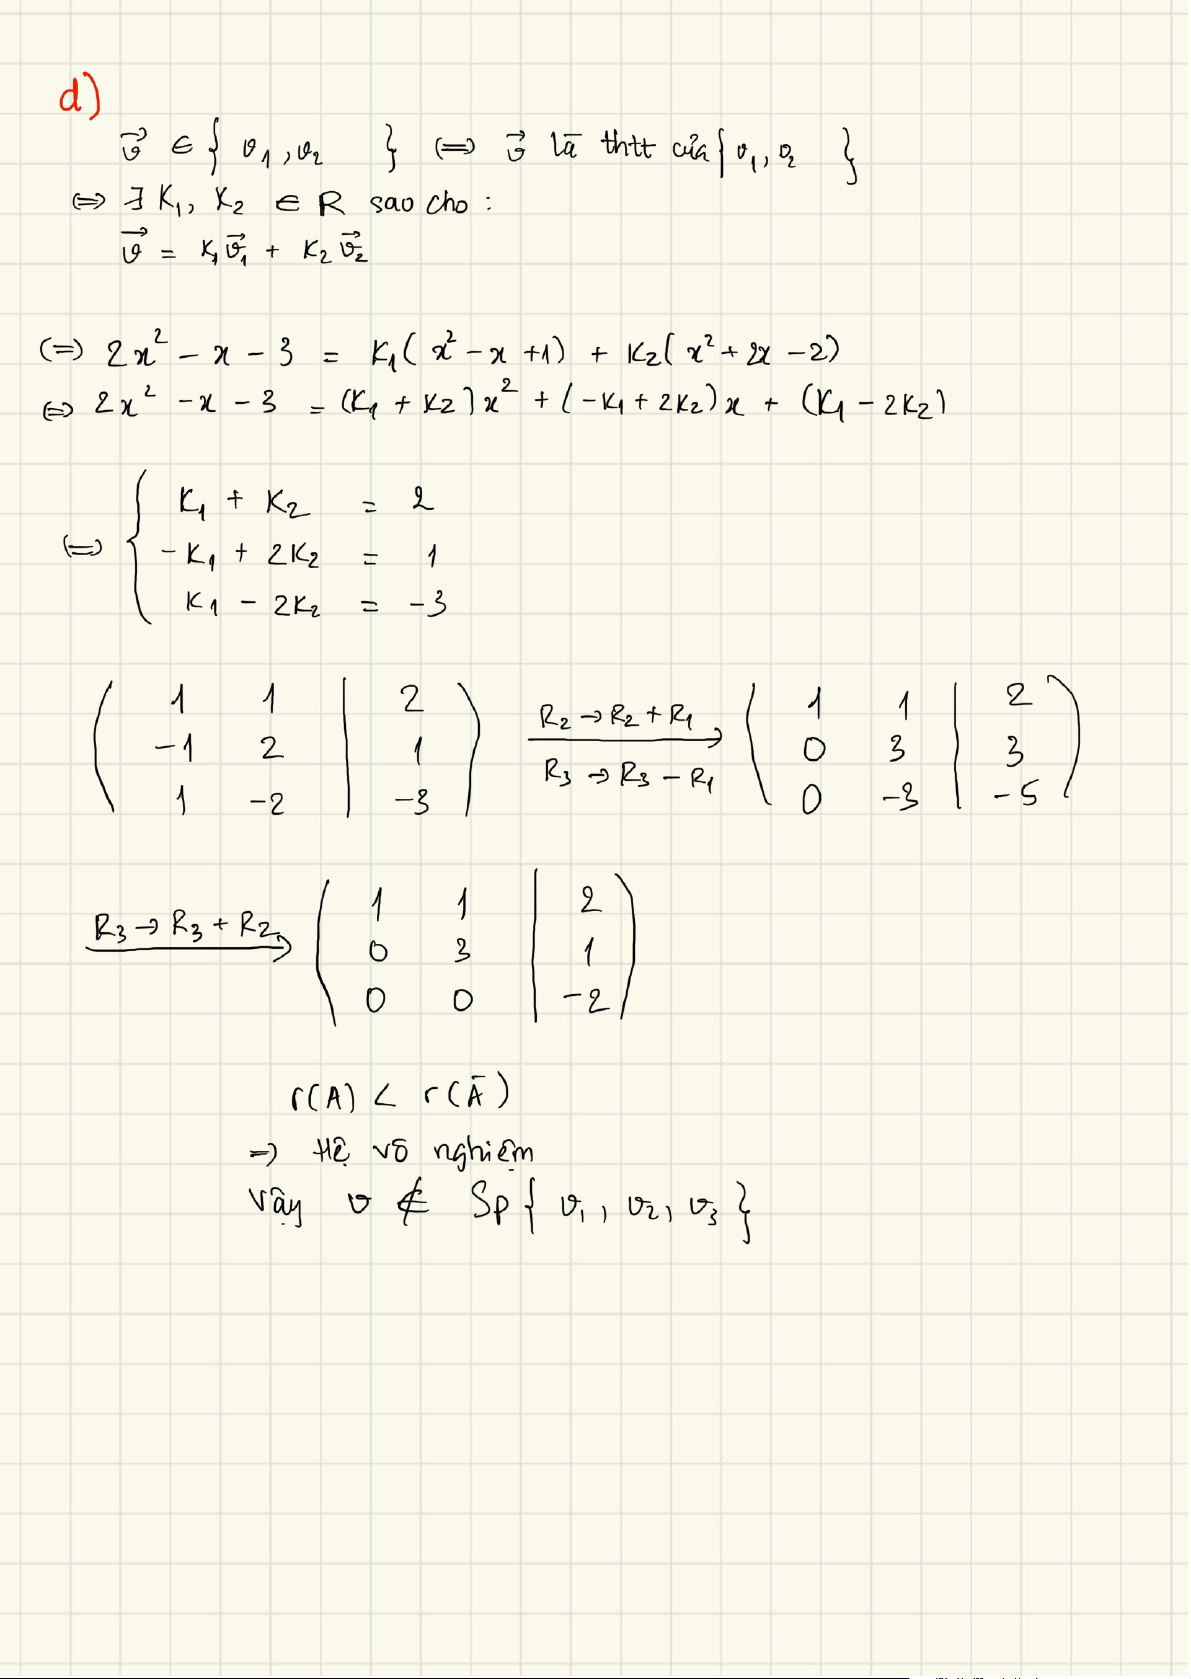 d)
v⃗ ∈ { v₁, v₂ } ⇔ v⃗ là thtt của { v₁, v₂ }
⇔ ∃ K₁, K₂ ∈ R sao cho :
v⃗ = K₁v⃗₁ + K₂v⃗₂
⇔ 2x² - x - 3 = K₁( x² - x + 1) + K₂( x² + 2x - 2)
⇔ 2x² - x - 3 = (K₁ + K₂)x² + (-K₁ + 2K₂)x + (K₁ - 2K₂)
K₁ + K₂ = 2
⇔ { -K₁ + 2K₂ = 1
K₁ - 2K₂ = -3
1 1 | 2 R₂ → R₂ + R₁ 1 1 | 2
-1 2 | 1 0 3 | 3
1 -2 | -3 R₃ → R₃ - R₁ 0 -3 | -5
1 1 | 2
R₃ → R₃ + R₂ 0 3 | 1
0 0 | -2
r(A) < r(Ā)
⇒ Hệ vô nghiệm
Vậy v ∉ Sp { v₁, v₂, v₃ }